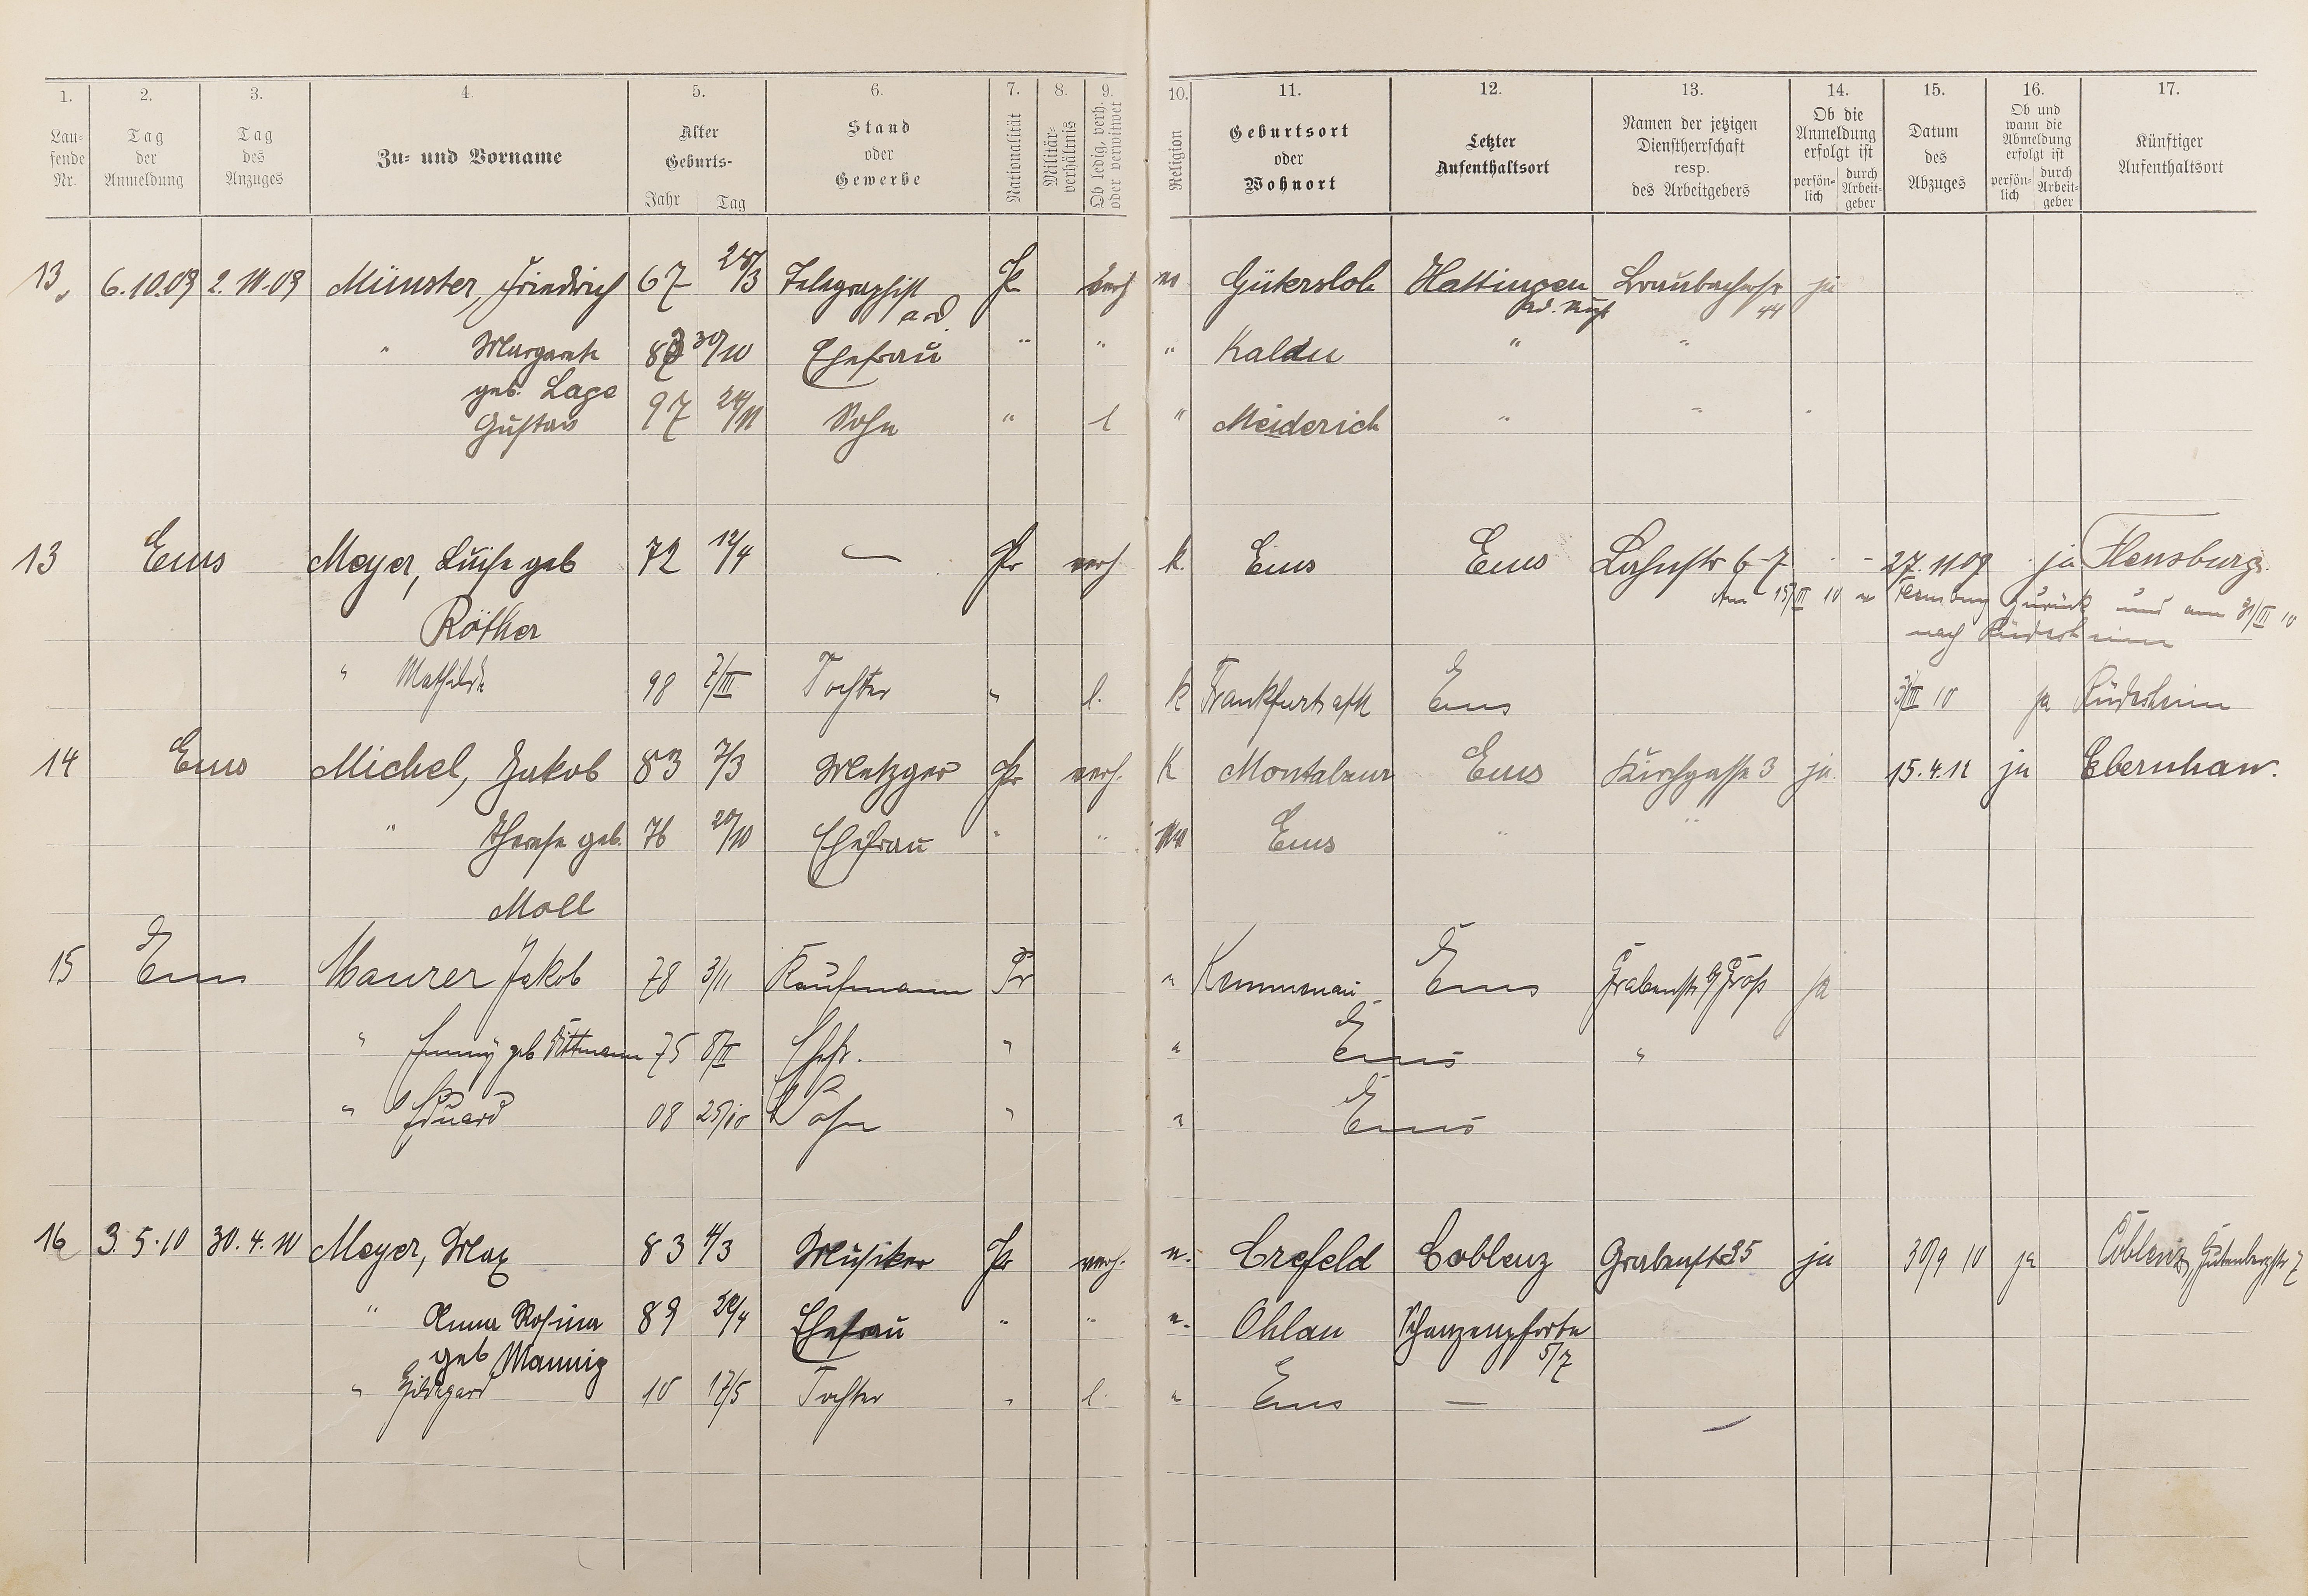 1. 2. 3. 4. 5. 6. 7. 8. 9. 10. 11. 12. 13. 14. 15. 16. 17.
Lau-
fende
Nr.
Tag
der
Anmeldung
Tag
des
Anzuges
Zu- und Vorname
Alter
Geburts-
Jahr Tag
Stand
oder
Gewerbe
Nationalität
Militär-
verhältnis
Ob ledig, verh.
oder verwitwet
Religion
Geburtsort
oder
Wohnort
Letzter
Aufenthaltsort
Namen der jetzigen
Dienstherrschaft
resp.
des Arbeitgebers
Ob die
Anmeldung
erfolgt ist
persön-
lich
durch
Arbeit-
geber
Datum
des
Abzuges
Ob und
wann die
Abmeldung
erfolgt ist
persön-
lich
durch
Arbeit-
geber
Künftiger
Aufenthaltsort
13. 6.10.09 2.10.09 Münster, Friedrich 67 28/3 Telegraphist Pr verh Gütersloh Hattingen ja
a. D. a.d. Ruhr 44
" Margarete 30/10 Ehefrau " " " Kalden " "
geb. Lage
Gustav 97 24/11 Sohn " l " Meiderich " " "
13 Ems Meyer, Luise geb 72 12/4 — Pr verh. k. Ems Ems Lahnstr 6-7 - - 27.11.09 ja Flensburg.
Röther zurück und am 31/III 10
nach Rüdesheim
" Mathilde 98 7/III Tochter " l. k Frankfurt a/M Ems 31/III 10 ja Rüdesheim
14 Ems Michel, Jakob 83 7/3 Metzger Pr verh. K Montabaur Ems Kirchgasse 3 ja 15.4.12 ja Ebernhan.
" Therese geb. 76 20/10 Ehefrau " " Ems " "
Moll
15 Ems Maurer Jakob 78 3/11 Kaufmann Pr " Kemmenau Ems Grabenstr ja
" Emmy geb Dittmann 75 8/II Ehefr. " " Ems "
" Eduard 08 25/10 Sohn " " Ems
16 3.5.10 30.4.10 Meyer, Max 83 4/3 Musiker Pr verh. Crefeld Coblenz Grabenstr 35 ja 30/9 10 ja Coblenz, Gutenbergstr 7
" Anna Rosina 89 Ehefrau " " Ohlau Schanzenpforte
geb Mannig 5/7
" Hildegard 10 17/5 Tochter " l. " Ems —